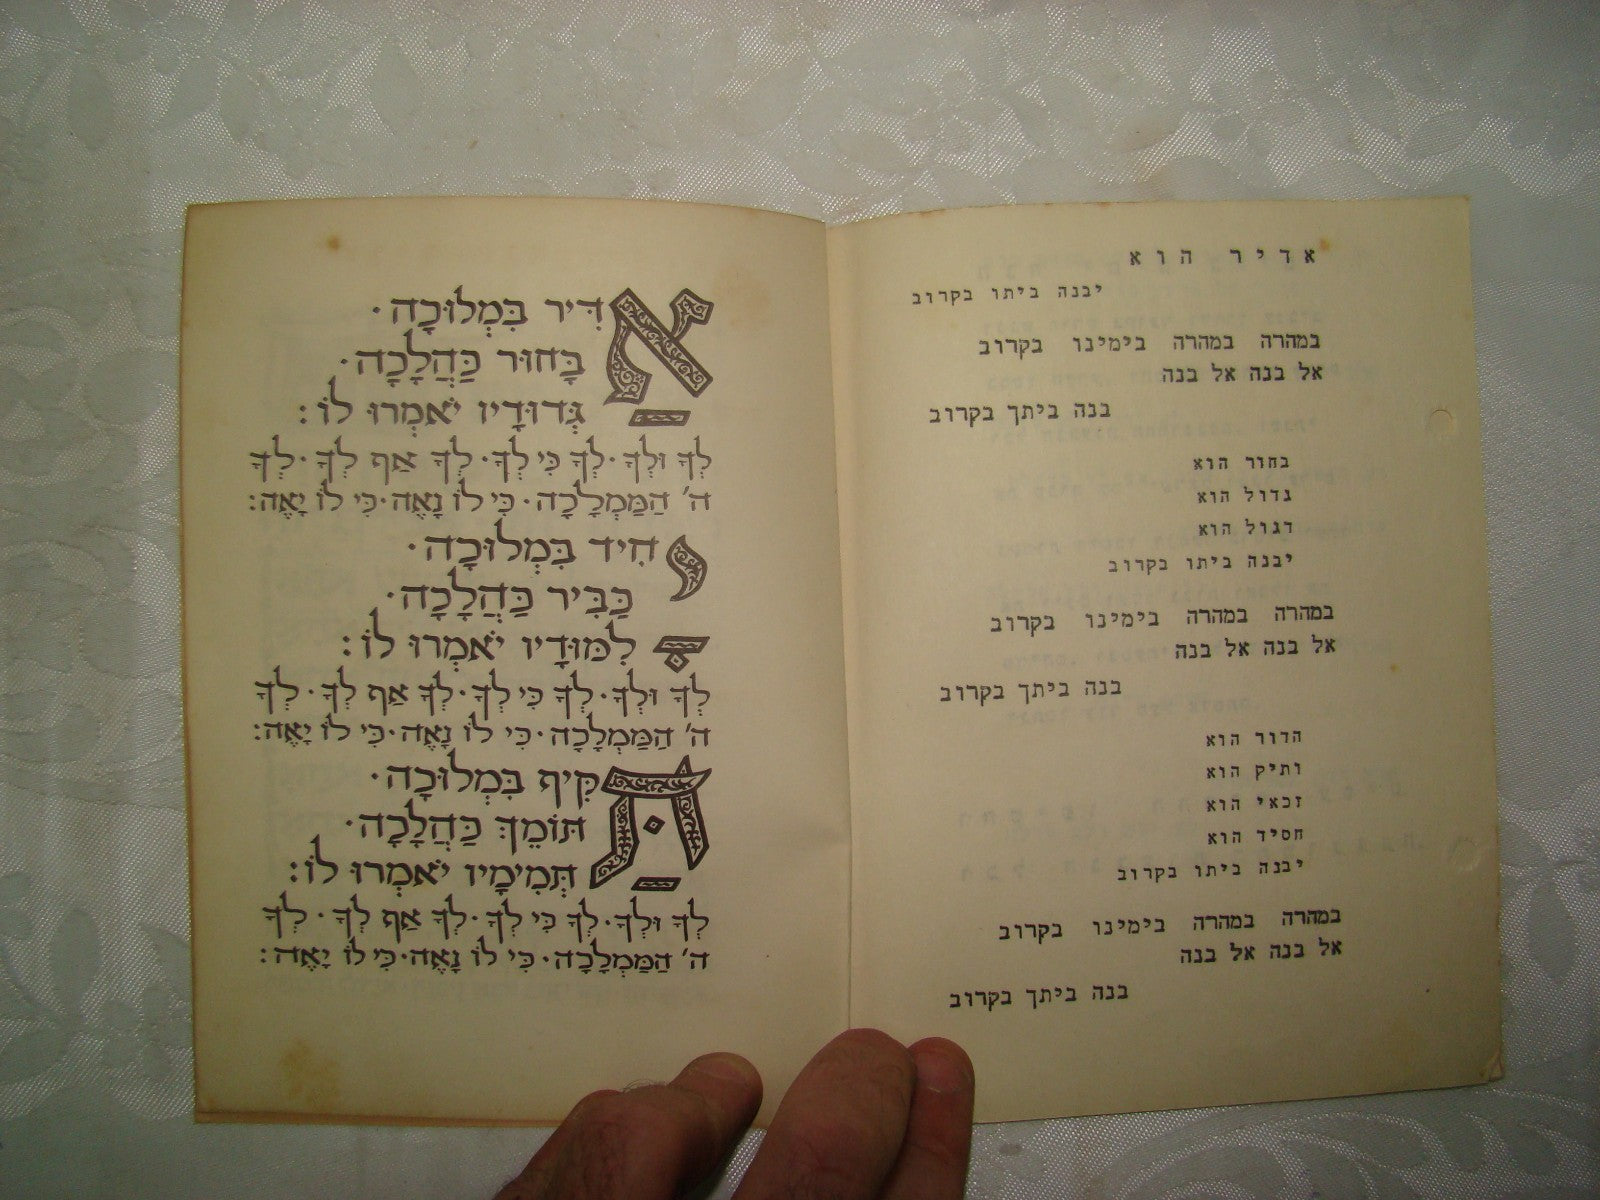 אדיר הוא
יבנה ביתו בקרוב
במהרה במהרה בימינו בקרוב
אל בנה אל בנה
בנה ביתך בקרוב
בחור הוא
גדול הוא
דגול הוא
יבנה ביתו בקרוב
במהרה במהרה בימינו בקרוב
אל בנה אל בנה
בנה ביתך בקרוב
הדור הוא
ותיק הוא
זכאי הוא
חסיד הוא
יבנה ביתו בקרוב
במהרה במהרה בימינו בקרוב
אל בנה אל בנה
בנה ביתך בקרוב
אַדִּיר בִּמְלוּכָה·
בָּחוּר כַּהֲלָכָה·
גְּדוּדָיו יֹאמְרוּ לוֹ:
לְךָ וּלְךָ· לְךָ כִּי לְךָ· לְךָ אַף לְךָ· לְךָ
ה׳ הַמַּמְלָכָה· כִּי לוֹ נָאֶה· כִּי לוֹ יָאֶה:
יָחִיד בִּמְלוּכָה·
כַּבִּיר כַּהֲלָכָה·
לִמּוּדָיו יֹאמְרוּ לוֹ:
לְךָ וּלְךָ· לְךָ כִּי לְךָ· לְךָ אַף לְךָ· לְךָ
ה׳ הַמַּמְלָכָה· כִּי לוֹ נָאֶה· כִּי לוֹ יָאֶה:
תַּקִּיף בִּמְלוּכָה·
תּוֹמֵךְ כַּהֲלָכָה·
תְּמִימָיו יֹאמְרוּ לוֹ:
לְךָ וּלְךָ· לְךָ כִּי לְךָ· לְךָ אַף לְךָ· לְךָ
ה׳ הַמַּמְלָכָה· כִּי לוֹ נָאֶה· כִּי לוֹ יָאֶה: